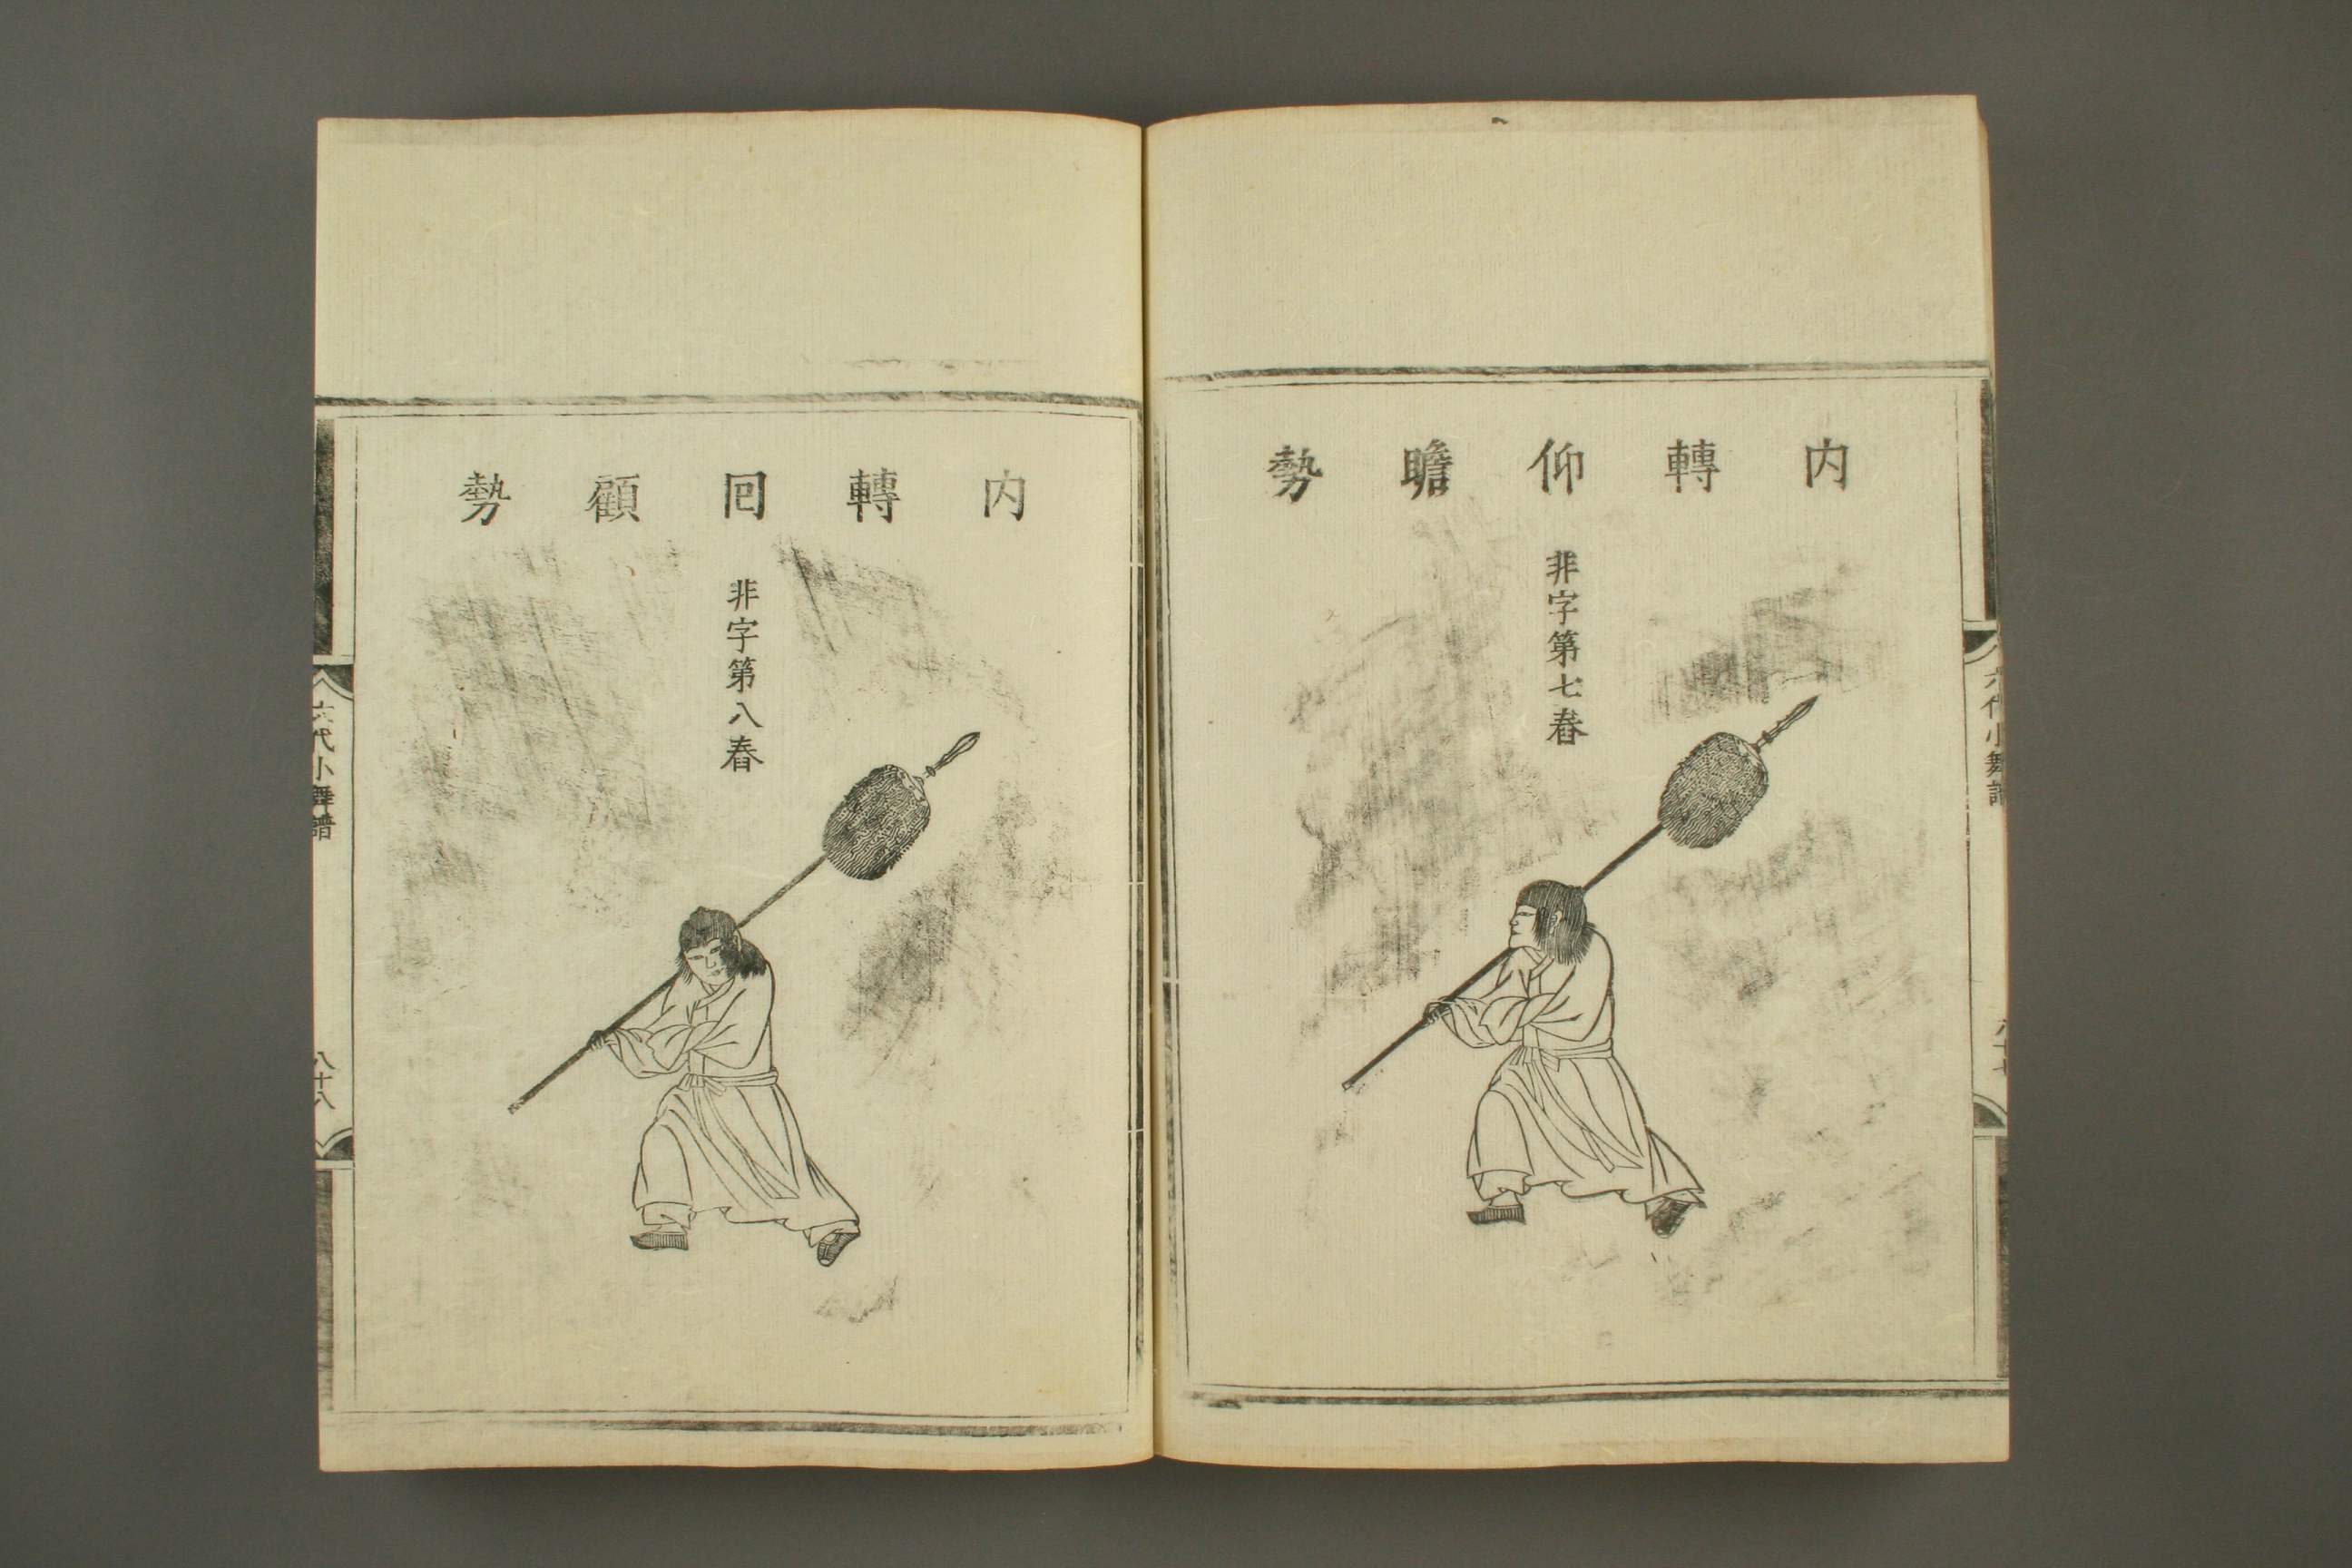 内轉仰瞻勢
非字第七舂
六代小舞譜
内轉囘顧勢
非字第八舂
六代小舞譜
八十八